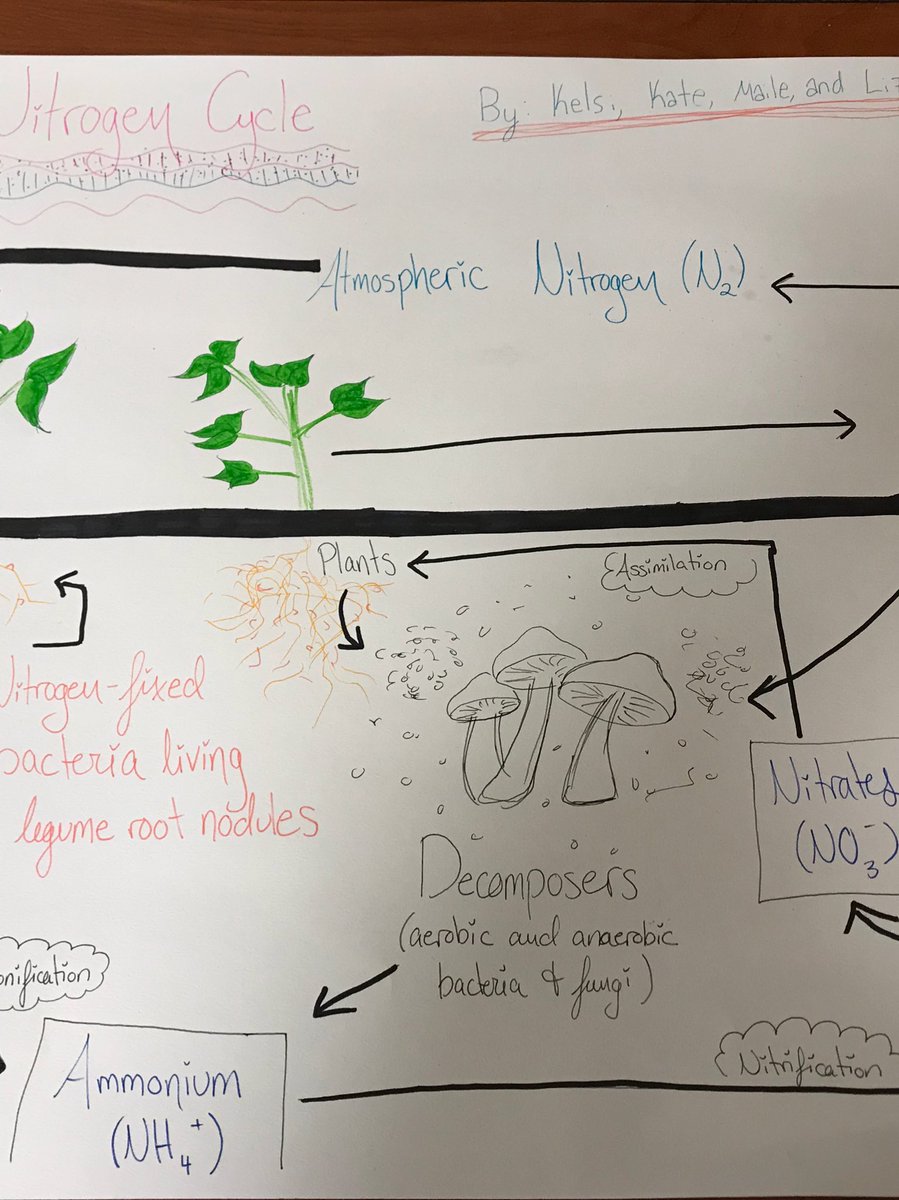 Nitrogen Cycle
By: Kelsi, Kate, Maile, and Liz
Atmospheric Nitrogen (N₂)
Plants
Assimilation
Nitrogen-fixed
bacteria living
legume root nodules
Nitrates
(NO₃⁻)
Decomposers
(aerobic and anaerobic
bacteria & fungi)
onification
Ammonium
(NH₄⁺)
Nitrification